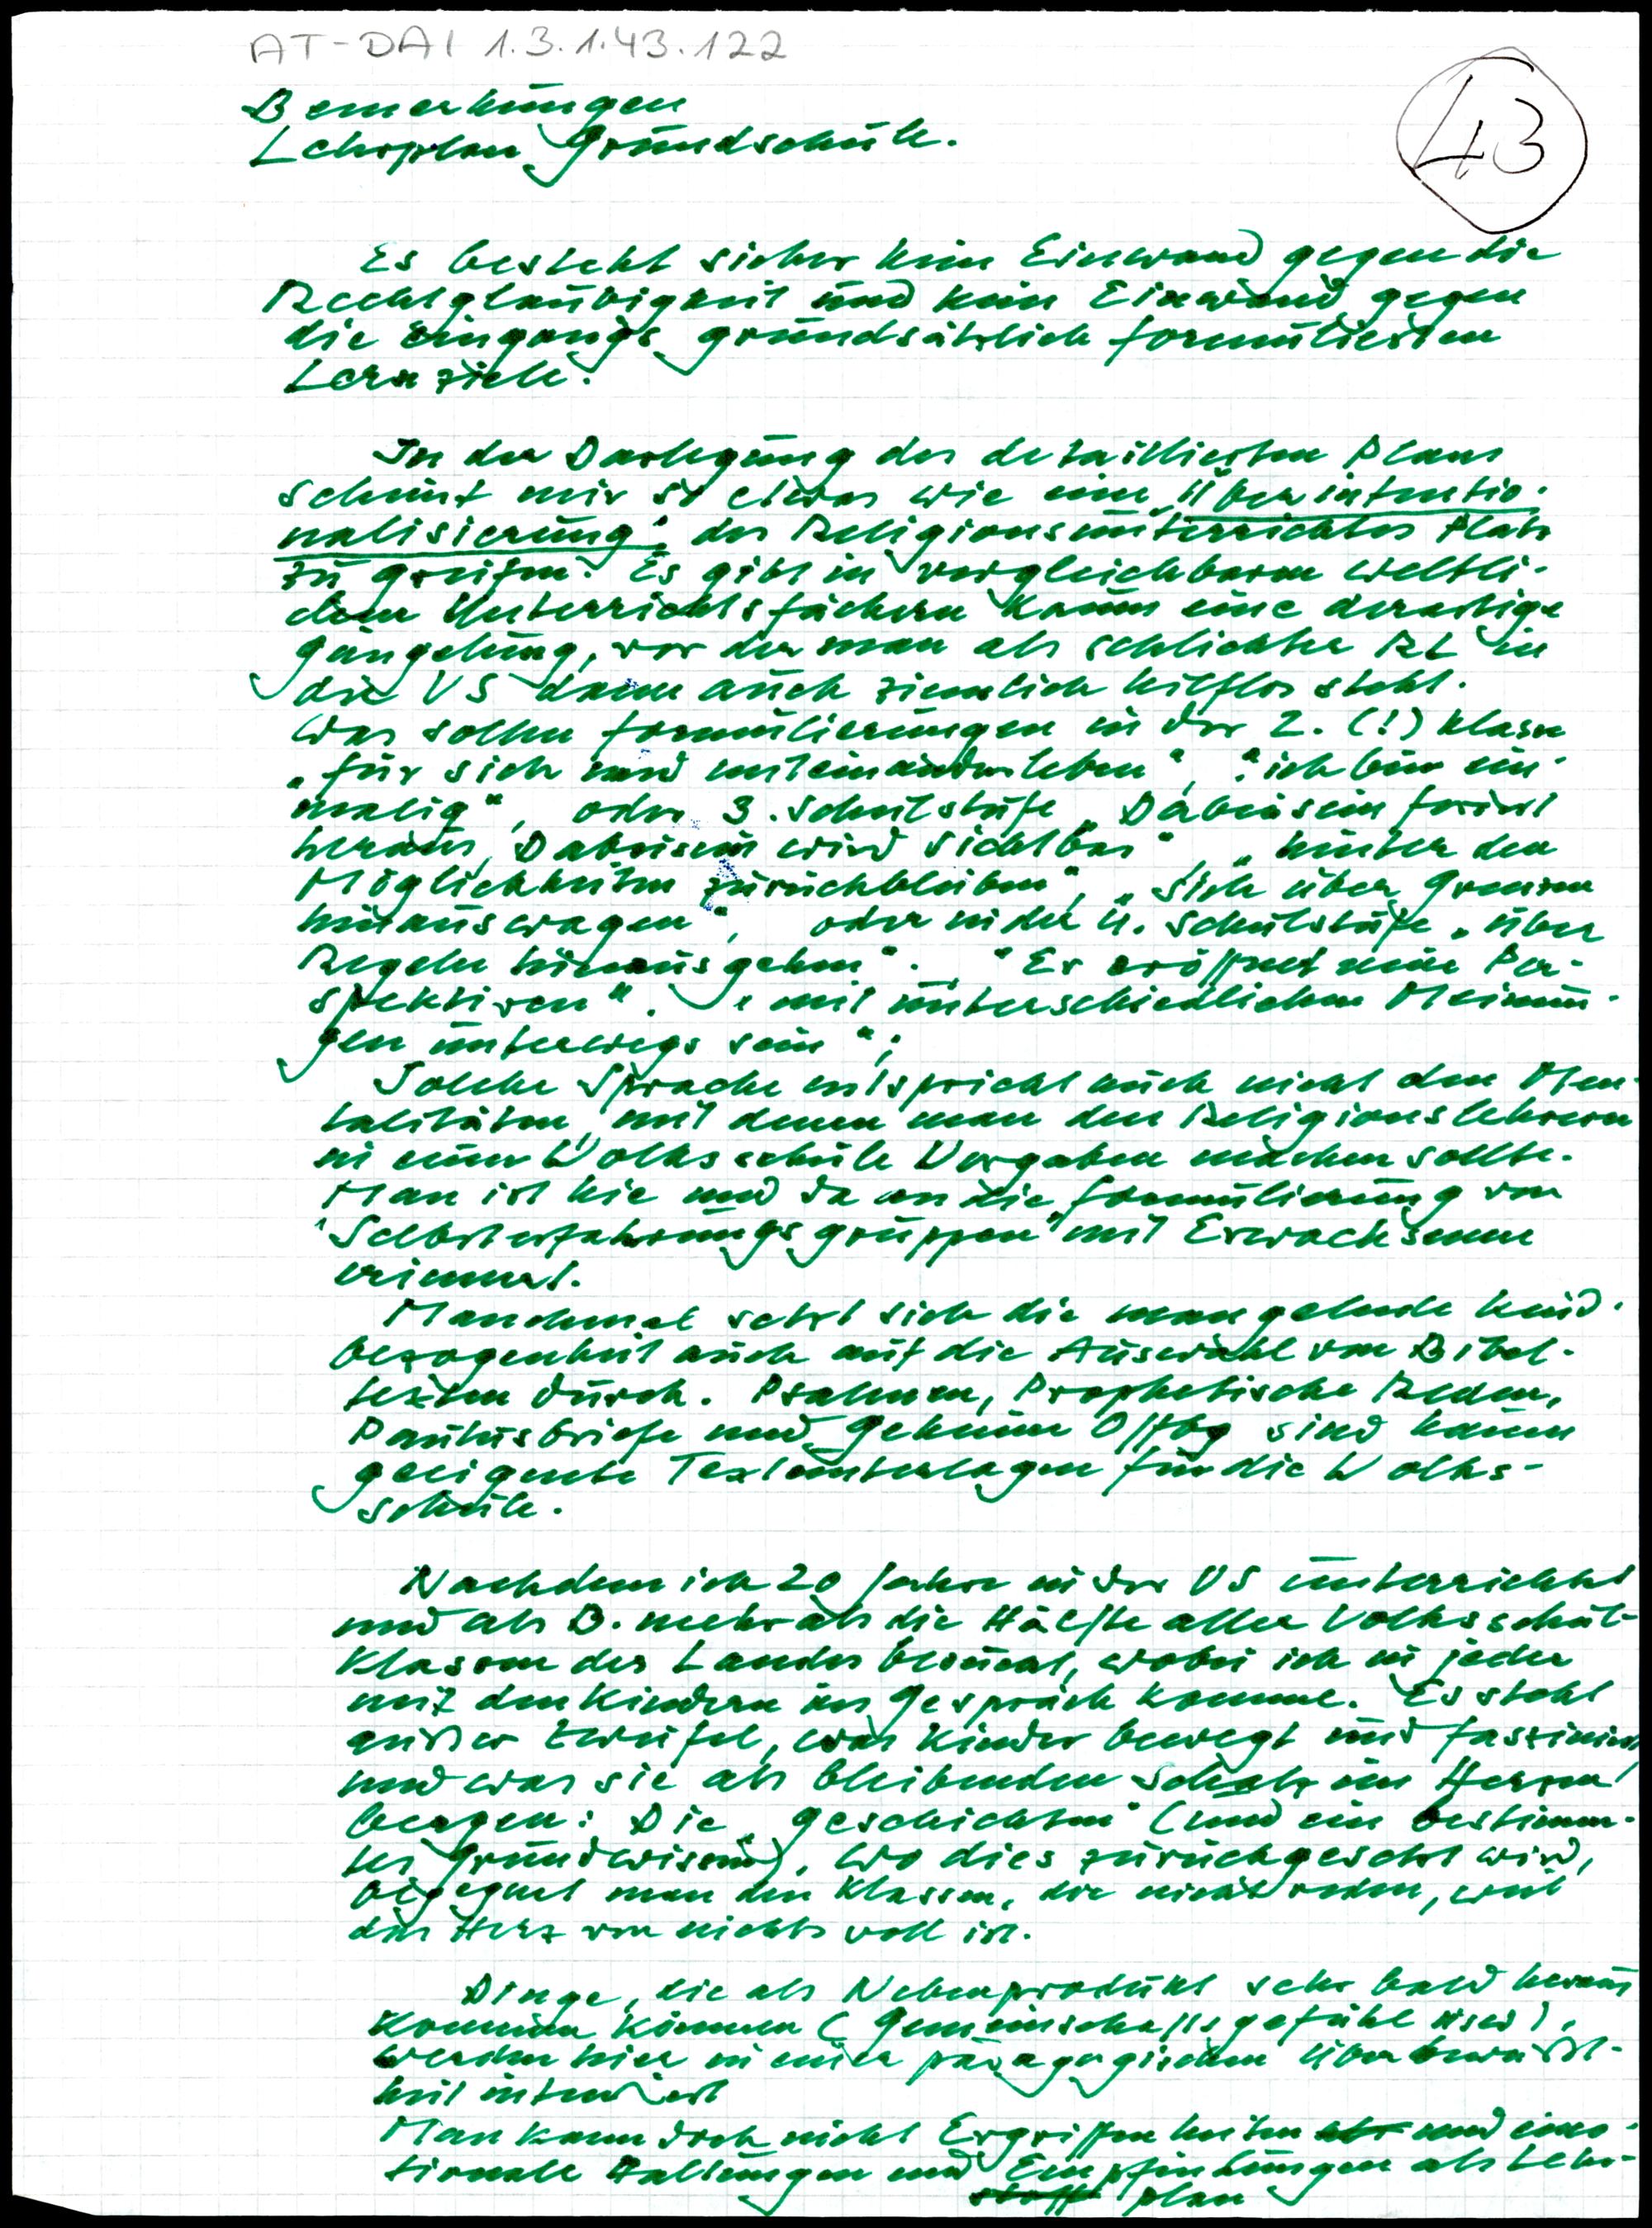 AT-DAI 1.3.1.43.122
43
Bemerkungen
Lehrplan Grundschule.
Es besteht sicher kein Einwand gegen die
Rechtgläubigkeit und kein Einwand gegen
die eingangs grundsätzlich formulierten
Lernziele.
In der Darlegung des detaillierten Plans
scheint mir so etwas wie eine „Überintentio-
nalisierung" des Religionsunterrichtes Platz
zu greifen. Es gibt in vergleichbaren weltli-
chen Unterrichtsfächern kaum eine derartige
Gängelung, vor der man als schlichter RL in
der VS dann auch ziemlich hilflos steht.
Was sollen Formulierungen in der 2. (!) Klasse
„für sich und miteinander leben", „ich bin ein-
malig", oder 3. Schulstufe „Dabeisein fordert
heraus, Dabeisein wird sichtbar", „hinter den
Möglichkeiten zurückbleiben", „Sich über Grenzen
hinauswagen", oder in der 4. Schulstufe „über
Regeln hinausgehen". „Er eröffnet neue Per-
spektiven". „mit unterschiedlichen Meinun-
gen unterwegs sein";
Solche Sprache entspricht auch nicht den Men-
talitäten, mit denen man den Religionslehrern
in einer Volksschule Vorgaben machen sollte.
Man ist hie und da an die Formulierung von
"Selbsterfahrungsgruppen" mit Erwachsenen
erinnert.
Manchmal setzt sich die mangelnde Kind-
bezogenheit auch auf die Auswahl von Bibel-
texten durch. Psalmen, Prophetische Reden,
Paulusbriefe und Geheime Offbg sind kaum
geeignete Textunterlagen für die Volks-
schule.
Nachdem ich 20 Jahre in der VS unterrichtet
und als B. mehr als die Hälfte aller Volksschul-
klassen des Landes besucht, wobei ich in jeder
mit den Kindern ins Gespräch komme. Es steht
außer Zweifel, was Kinder bewegt und fasziniert,
und was sie als bleibenden Schatz im Herzen
bergen: Die „Geschichten" (und ein bestimm-
tes Grundwissen). Wo dies zurückgesetzt wird,
begegnet man den Klassen, die nicht reden, weil
das Herz von nichts voll ist.
Dinge, die als Nebenprodukt sehr bald heraus
kommen können (Gemeinschaftsgefühl usw),
werden hier in einer pädagogischen Überbewusst-
heit intendiert
Man kann doch nicht Ergriffenheiten und emo-
tionale Haltungen und Empfindungen als Lehr-
stoff plan